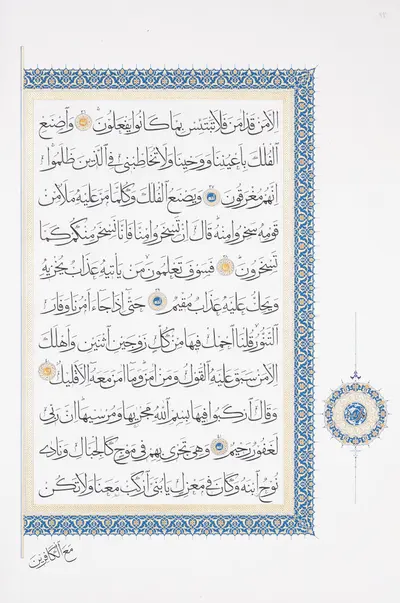 اِلَّا مَنْ قَدْ اٰمَنَ فَلَا تَبْتَئِسْ بِمَا كَانُوا يَفْعَلُونَۚ وَاصْنَعِ
الْفُلْكَ بِاَعْيُنِنَا وَوَحْيِنَا وَلَا تُخَاطِبْنِي فِي الَّذِينَ ظَلَمُواۚ
اِنَّهُمْ مُغْرَقُونَ وَيَصْنَعُ الْفُلْكَ وَكُلَّمَا مَرَّ عَلَيْهِ مَلَاٌ مِنْ
قَوْمِهِ سَخِرُوا مِنْهُۜ قَالَ اِنْ تَسْخَرُوا مِنَّا فَاِنَّا نَسْخَرُ مِنْكُمْ كَمَا
تَسْخَرُونَۜ فَسَوْفَ تَعْلَمُونَۙ مَنْ يَأْتِيهِ عَذَابٌ يُخْزِيهِ
وَيَحِلُّ عَلَيْهِ عَذَابٌ مُقِيمٌ حَتّٰى اِذَا جَاءَ اَمْرُنَا وَفَارَ
التَّنُّورُۙ قُلْنَا احْمِلْ فِيهَا مِنْ كُلٍّ زَوْجَيْنِ اثْنَيْنِ وَاَهْلَكَ
اِلَّا مَنْ سَبَقَ عَلَيْهِ الْقَوْلُ وَمَنْ اٰمَنَۜ وَمَا اٰمَنَ مَعَهُ اِلَّا قَلِيلٌ
وَقَالَ ارْكَبُوا فِيهَا بِسْمِ اللهِ مَجْرٰيهَا وَمُرْسٰيهَاۜ اِنَّ رَبِّي
لَغَفُورٌ رَحِيمٌ وَهِيَ تَجْرِي بِهِمْ فِي مَوْجٍ كَالْجِبَالِ وَنَادٰى
نُوحٌ ابْنَهُ وَكَانَ فِي مَعْزِلٍ يَا بُنَيَّ ارْكَبْ مَعَنَا وَلَا تَكُنْ
مَعَ الْكَافِرِينَ